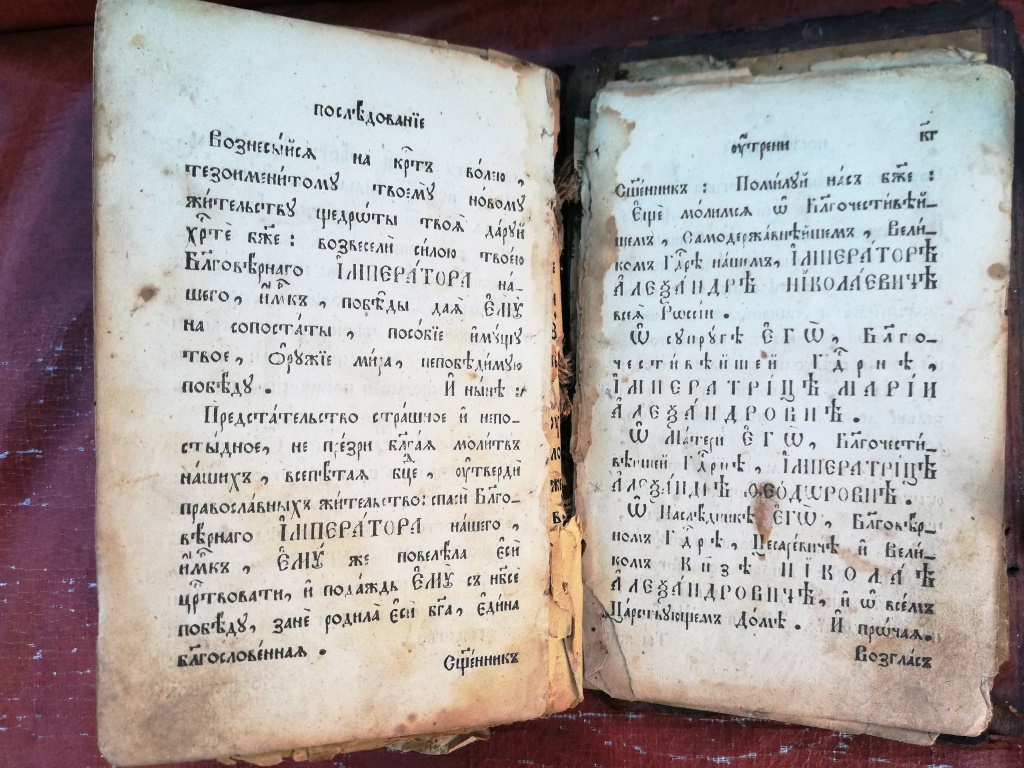 послѣ́дованїе
Вознесы́йсѧ на крⷭ҇тъ во́лею,
тезоимени́томꙋ твоемꙋ̀ но́вомꙋ
жи́тельствꙋ щедрѡ́ты твоѧ̑ да́рꙋй
хрⷭ҇тѐ бж҃е: возвеселѝ си́лою твое́ю
Бл҃говѣ́рнаго І҆МПЕРА́ТОРА на-
шего, и҆́м҃къ, побѣ́ды даѧ̀ Є҆МꙊ̀
на сопоста́ты, посо́бїе и҆мꙋ́щꙋ
твоѐ, Ѻ҆рꙋ́жїе ми́ра, непобѣди́мꙋю
побѣ́дꙋ. И҆ ны́нѣ:
Предста́тельство стра́шное и҆ непо-
сты́дное, не пре́зри бл҃га́ѧ моли́твъ
на́шихъ, всепѣ́таѧ бцⷣе, ᲂу҆твердѝ
правосла́вныхъ жи́тельство: спасѝ Бл҃го-
вѣ́рнаго І҆МПЕРА́ТОРА на́шего,
и҆́м҃къ, Є҆МꙊ́ же повелѣ́ла є҆сѝ
црⷭ҇твовати, и҆ пода́ждь Є҆МꙊ̀ съ нб҃сѐ
побѣ́дꙋ, занѐ родила̀ є҆сѝ бг҃а, є҆ди́на
благослове́ннаѧ.
Сщ҃е́нникъ
ᲂу҆́трени
к҃г
Сщ҃е́нникъ: Поми́лꙋй на́съ бж҃е:
Є҆щѐ мо́лимсѧ ѡ҆ Бл҃гочести́вѣй-
шемъ, Самодержа́внѣйшемъ, Вели́-
комъ Гдⷭ҇рѣ на́шемъ, І҆МПЕРА́ТОРѢ
А҆ЛЕѮА́НДРѢ НІКОЛА́ЕВИЧѢ
всеѧ̀ Рѡссі́и.
Ѡ҆ сꙋпрꙋ́гѣ Є҆ГѠ̀, Бл҃го-
чести́вѣйшей Гдⷭ҇рнѣ,
І҆МПЕРАТРІ́ЦѢ МАРІ́И
А҆ЛЕѮА́НДРОВНѢ.
Ѡ҆ Ма́тери Є҆ГѠ̀, Бл҃гочести́-
вѣйшей Гдⷭ҇рнѣ, І҆МПЕРАТРІ́ЦѢ
А҆ЛЕѮА́НДРѢ Ѳ҆ЕѠ́ДѠРОВНѢ.
Ѡ҆ Наслѣ́дникѣ Є҆ГѠ̀, Бл҃говѣ́р-
номъ Гдⷭ҇рѣ, Цесаре́вичѣ и҆ Вели́-
комъ Кн҃зѣ НІКОЛА́Ѣ
А҆ЛЕѮА́НДРОВИЧѢ, и҆ ѡ҆ все́мъ
Ца́рствꙋющемъ До́мѣ. И҆ прѡ́чаѧ.
Во́згласъ